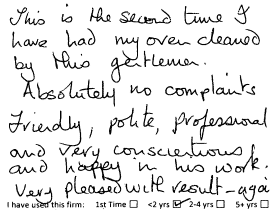 This is the second time I
have had my oven cleaned
by this gentleman.
Absolutely no complaints
Friendly, polite, professional
and very conscientious,
and happy in his work.
Very pleased with result - agai
I have used this firm: 1st Time ☐ <2 yrs ☑ 2-4 yrs ☐ 5+ yrs ☐